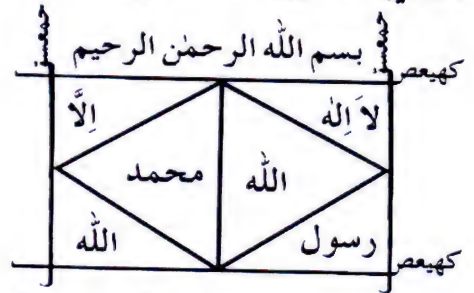 حمعسق
حمعسق
بسم الله الرحمٰن الرحيم
كهيعص
لاَ اِلٰه
اِلَّا
الله
محمد
رسول
الله
كهيعص